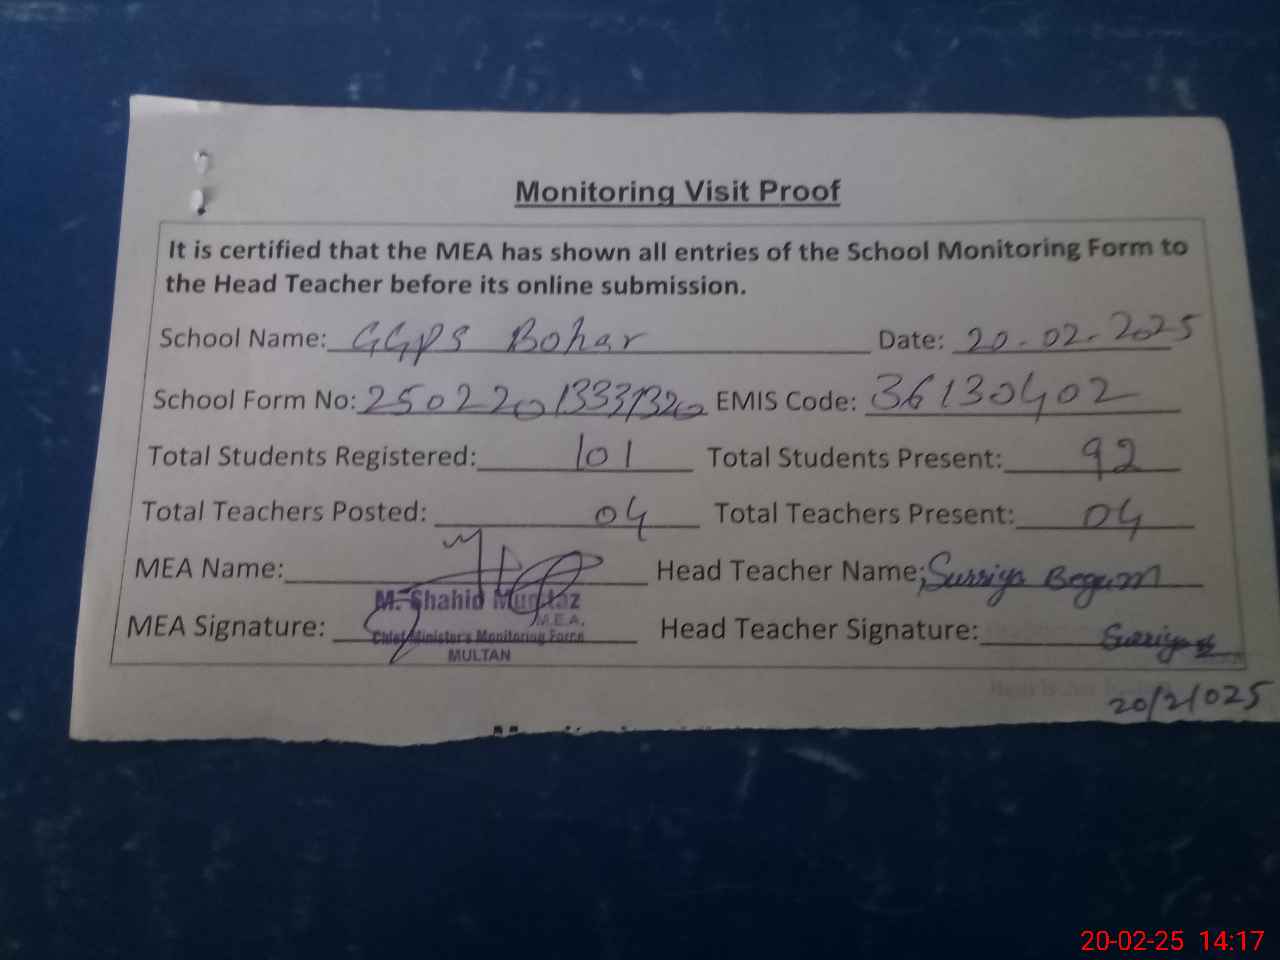 Monitoring Visit Proof
It is certified that the MEA has shown all entries of the School Monitoring Form to
the Head Teacher before its online submission.
School Name: GGPS Bohar Date: 20-02-2025
School Form No: EMIS Code: 36130402
Total Students Registered: 101 Total Students Present: 92
Total Teachers Posted: 04 Total Teachers Present: 04
MEA Name: Head Teacher Name: Surriya Begum
M. Shahid Mumtaz
M.E.A.
MEA Signature: Chief Minister's Monitoring Force Head Teacher Signature: Surriya
MULTAN
20/2/025
20-02-25 14:17